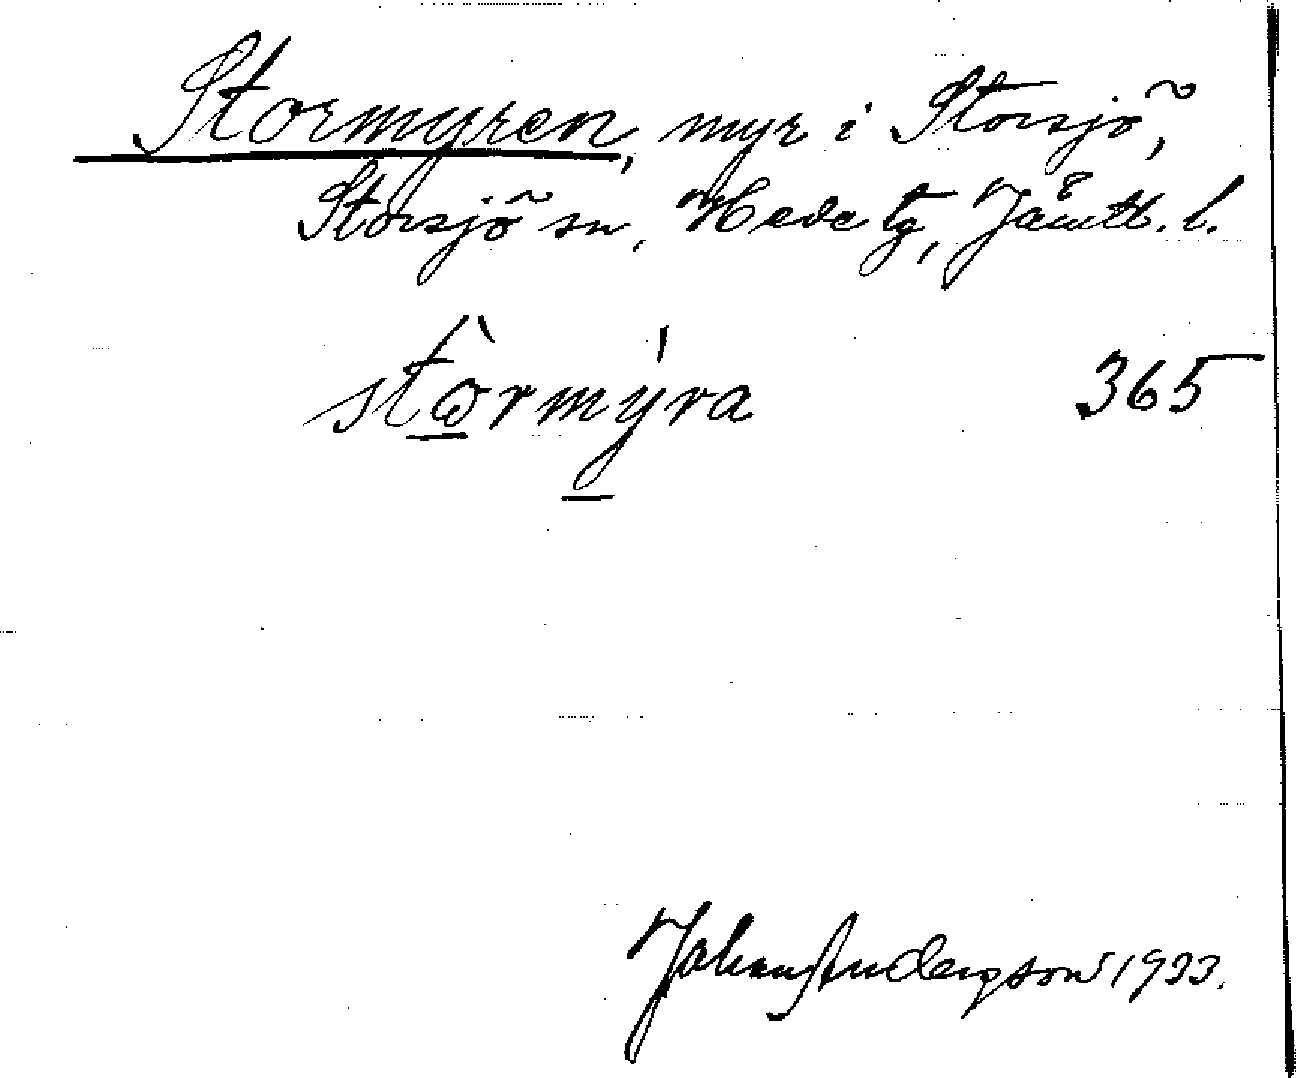 Stormyren, myr i Storsjö,
Storsjö sn, Hede tg, Jämtl. l.
stòrmýra 365
Johan Andersson 1933.